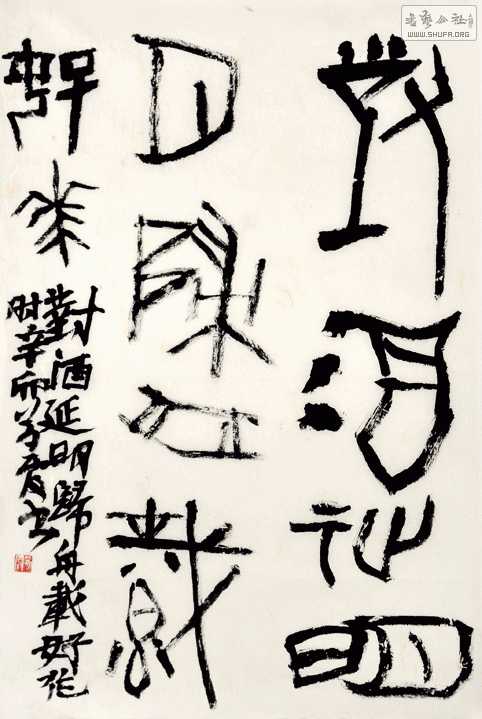 書藝公社
WWW.SHUFA.ORG
對酒延明
月歸舟載
好花
對酒延明歸舟載好花
時辛卯